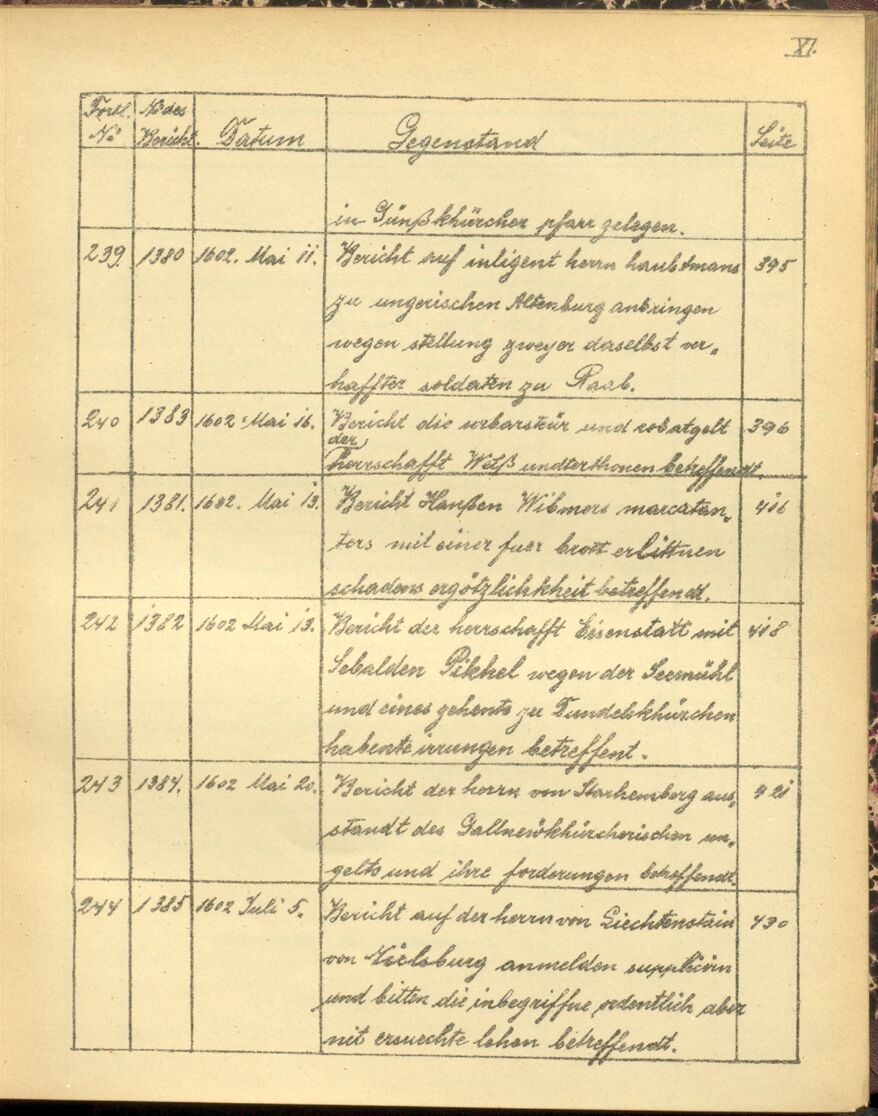 XI.
Fortl. No des
No Bericht. Datum Gegenstand Seite
in Günßkhürcher pfarr gelegen.
239. 1380 1602. Mai 11. Bericht auf inligent herrn haubdmans 395
zu ungerischen Altenburg anbringen
wegen stellung zweyer daselbst ver„
haffter soldaten zu Raab.
240 1383 1602 Mai 16. Bericht die urbarsteür und robatgelt 396
der
herrschafft Weiß undterthonen betreffendt.
241 1381. 1602. Mai 13. Bericht Hanßen Wibmers marcatan„ 416
ters mit einer fuer brott erlittnen
schadens ergötzlichkheit betreffendt.
242 1382 1602 Mai 13. Bericht der herrschafft Eisenstatt mit 418
Sebalden Pikhel wegen der Seemühl
und eines zehents zu Dundelskhürchen
habente irrungen betreffent.
243 1384. 1602 Mai 20. Bericht der herrn von Starhemberg aus„ 421
standt des Gallnewkhürcherischen un„
gelts und ihre forderungen betreffendt.
244 1385 1602 Juli 5. Bericht auf der herrn von Liechtenstain 430
von anmelden
und bitten die inbegriffne ordentlich aber
nit ersuechte lehen betreffendt.